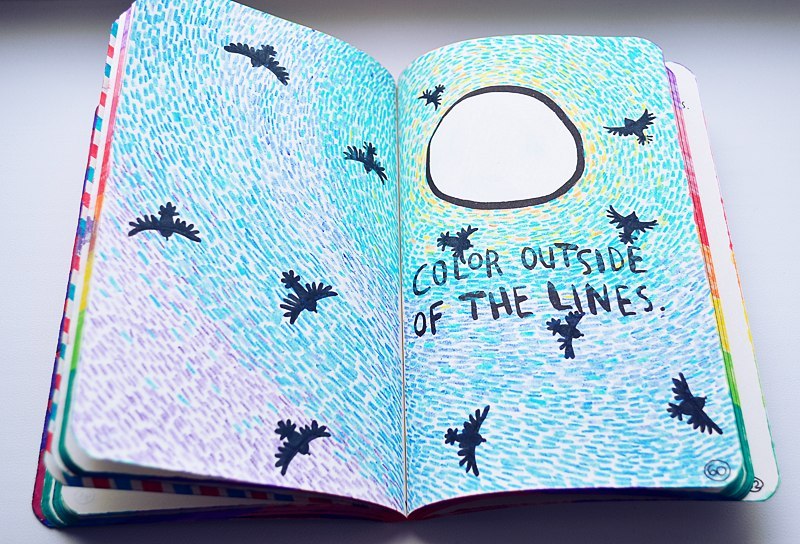 COLOR OUTSIDE
OF THE LINES.
60